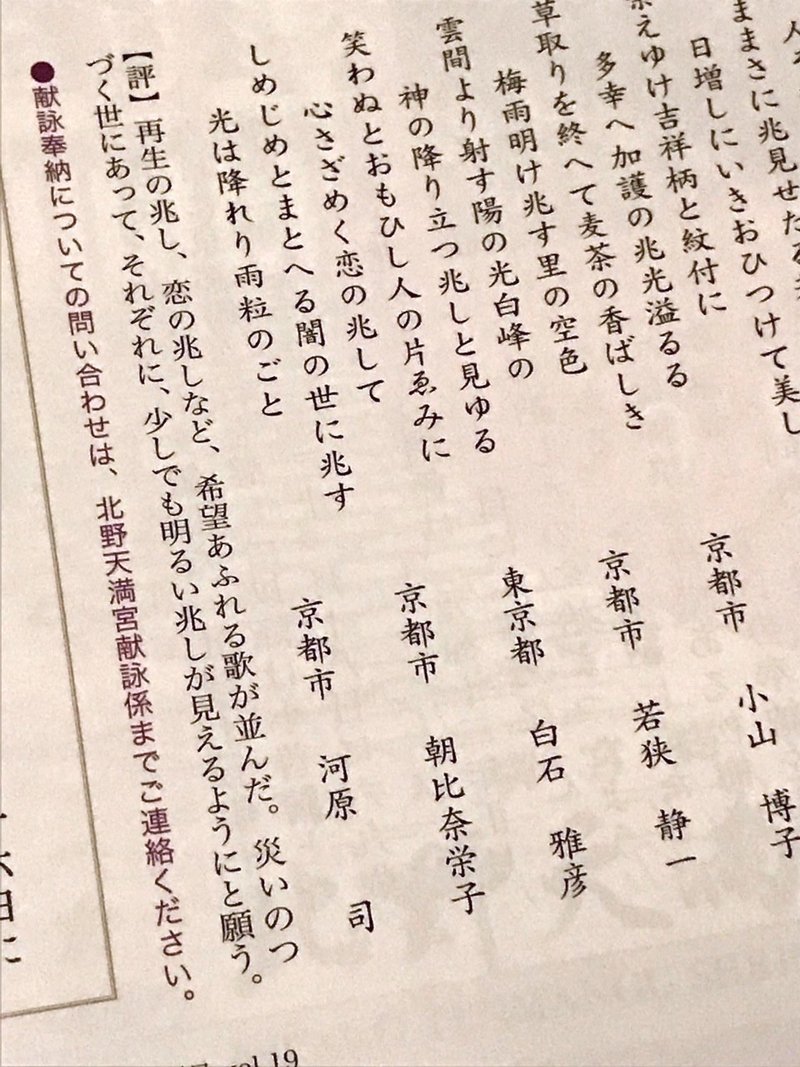 まさに兆見せたる
日増しにいきおひつけて美し
えゆけ吉祥柄と紋付に
多幸へ加護の兆光溢るる　京都市　小山　博子
草取りを終へて麦茶の香ばしき
梅雨明け兆す里の空色　京都市　若狭　静一
雲間より射す陽の光白峰の
神の降り立つ兆しと見ゆる　東京都　白石　雅彦
笑わぬとおもひし人の片ゑみに
心さざめく恋の兆して　京都市　朝比奈栄子
しめじめとまとへる闇の世に兆す
光は降れり雨粒のごと　京都市　河原　司
【評】再生の兆し、恋の兆しなど、希望あふれる歌が並んだ。災いのつ
づく世にあって、それぞれに、少しでも明るい兆しが見えるようにと願う。
●献詠奉納についての問い合わせは、北野天満宮献詠係までご連絡ください。
vol.19